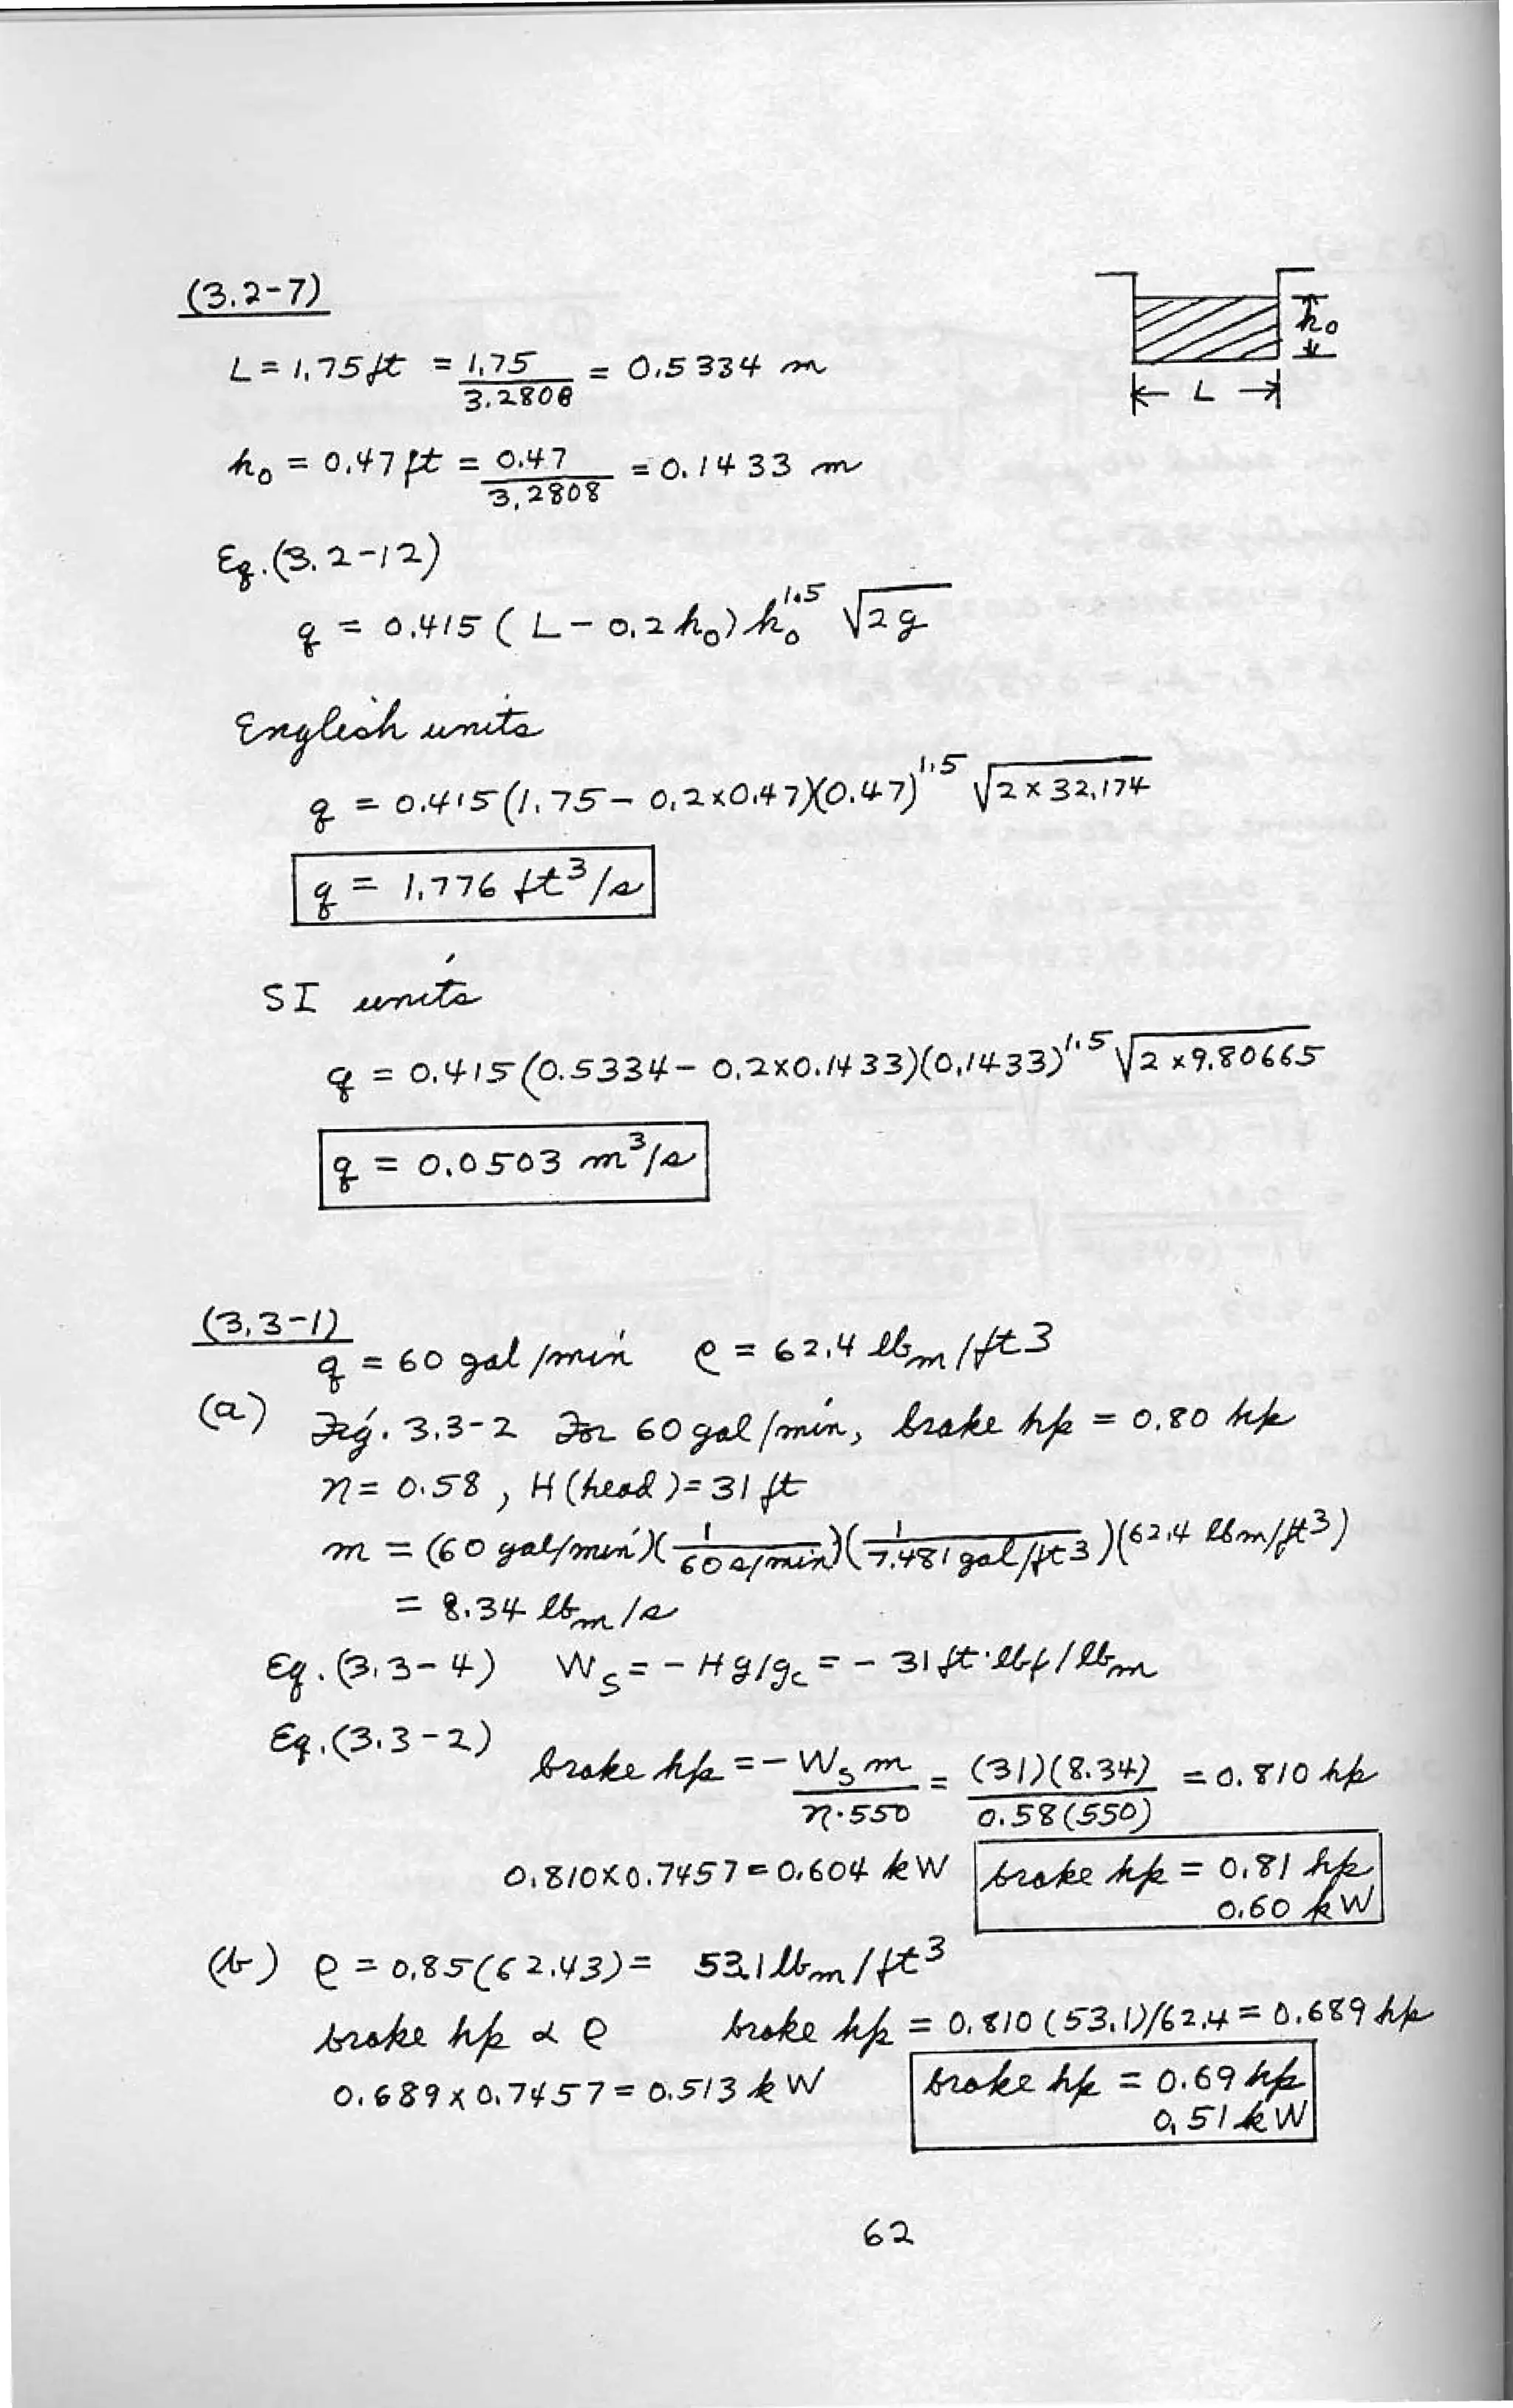 (3.2-7)
L = 1.75 ft = 1.75/3.2808 = 0.5334 m
h₀ = 0.47 ft = 0.47/3.2808 = 0.1433 m
h₀
L
Eq. (3.2-12)
q = 0.415 (L - 0.2 h₀) h₀^1.5 √2g
English units
q = 0.415 (1.75 - 0.2×0.47)(0.47)^1.5 √2 × 32.174
q = 1.776 ft³/s
SI units
q = 0.415 (0.5334 - 0.2×0.1433)(0.1433)^1.5 √2 × 9.80665
q = 0.0503 m³/s
(3.3-1)
q = 60 gal/min ρ = 62.4 lbm/ft3
(a) Fig. 3.3-2 For 60 gal/min, brake hp = 0.80 hp
η = 0.58, H (head) = 31 ft
m = (60 gal/min)(1/60 s/min)(1/7.481 gal/ft3)(62.4 lbm/ft3)
= 8.34 lbm/s
Eq. (3.3-4) Ws = - H g/gc = - 31 ft·lbf/lbm
Eq. (3.3-2) brake hp = - Ws m/η·550 = (31)(8.34)/0.58(550) = 0.810 hp
0.810×0.7457 = 0.604 kW brake hp = 0.81 hp
0.60 kW
(b) ρ = 0.85(62.43) = 53.1 lbm/ft³
brake hp α ρ brake hp = 0.810 (53.1)/62.4 = 0.689 hp
0.689 × 0.7457 = 0.513 kW brake hp = 0.69 hp
0.51 kW
62